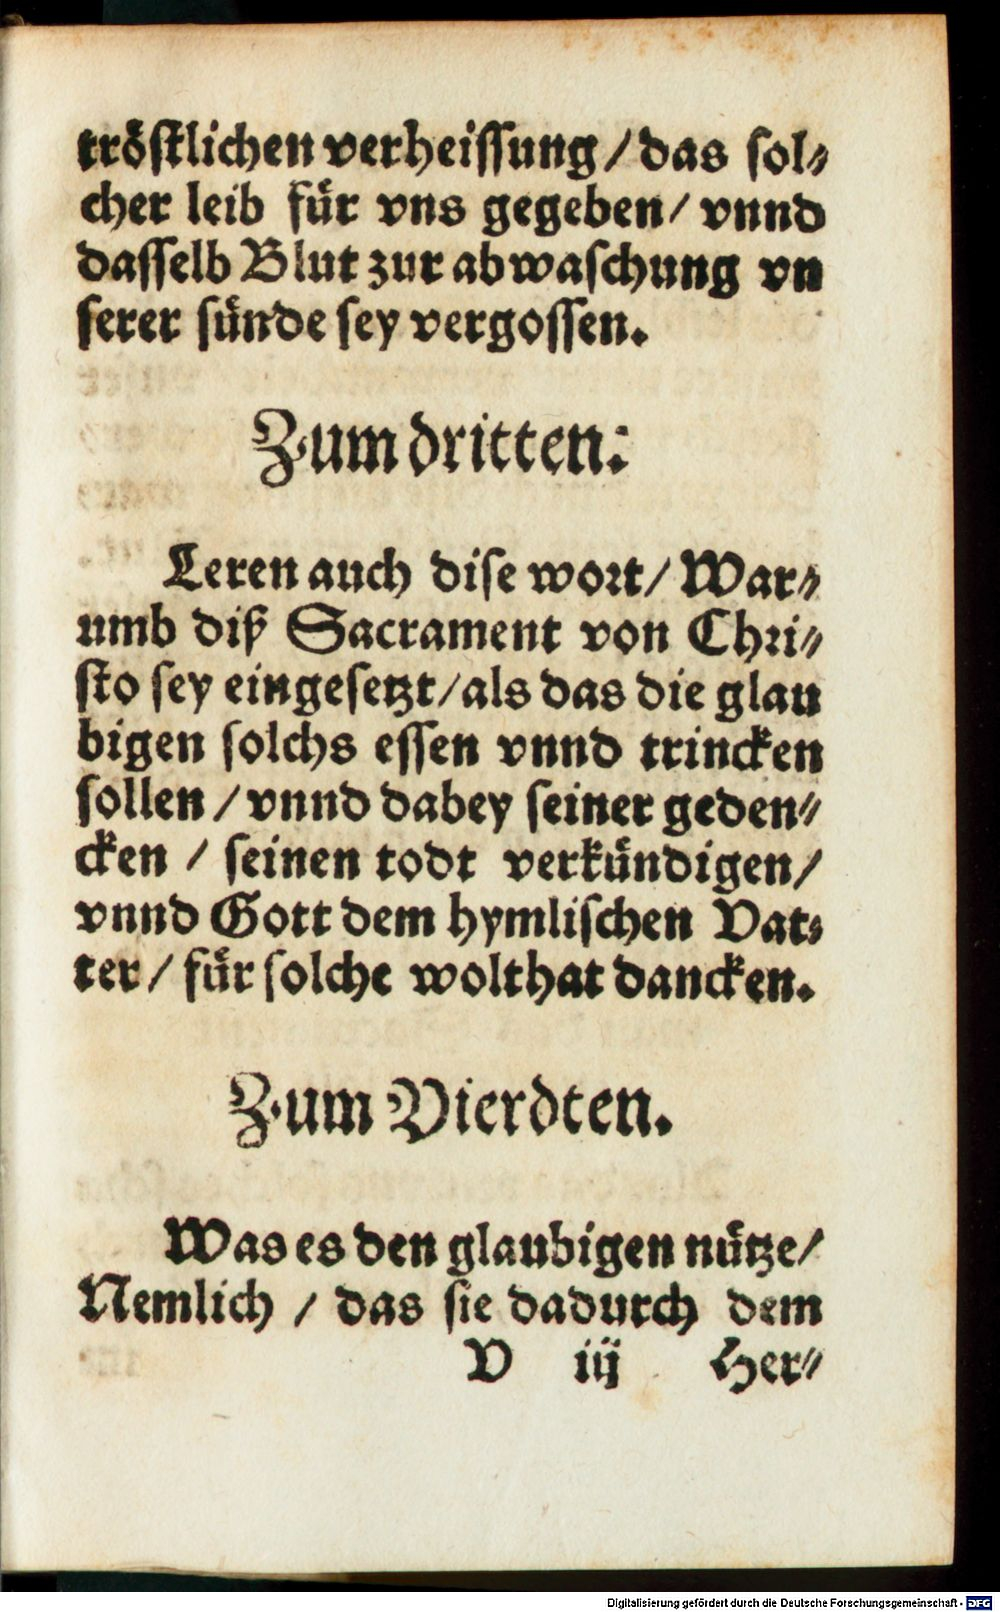 tröstlichen verheissung / das sol⸗
cher leib für vns gegeben / vnnd
dasselb Blut zur abwaschung vn
serer sünde sey vergossen.
Zum dritten:
Leren auch dise wort / War⸗
umb diß Sacrament von Chri⸗
sto sey eingesetzt / als das die glau
bigen solchs essen vnnd trincken
sollen / vnnd dabey seiner geden⸗
cken / seinen todt verkündigen /
vnnd Gott dem hymlischen Vat⸗
ter / für solche wolthat dancken.
Zum Vierdten.
Was es den glaubigen nütze /
Nemlich / das sie dadurch dem
V iij Her⸗
Digitalisierung gefördert durch die Deutsche Forschungsgemeinschaft - DFG